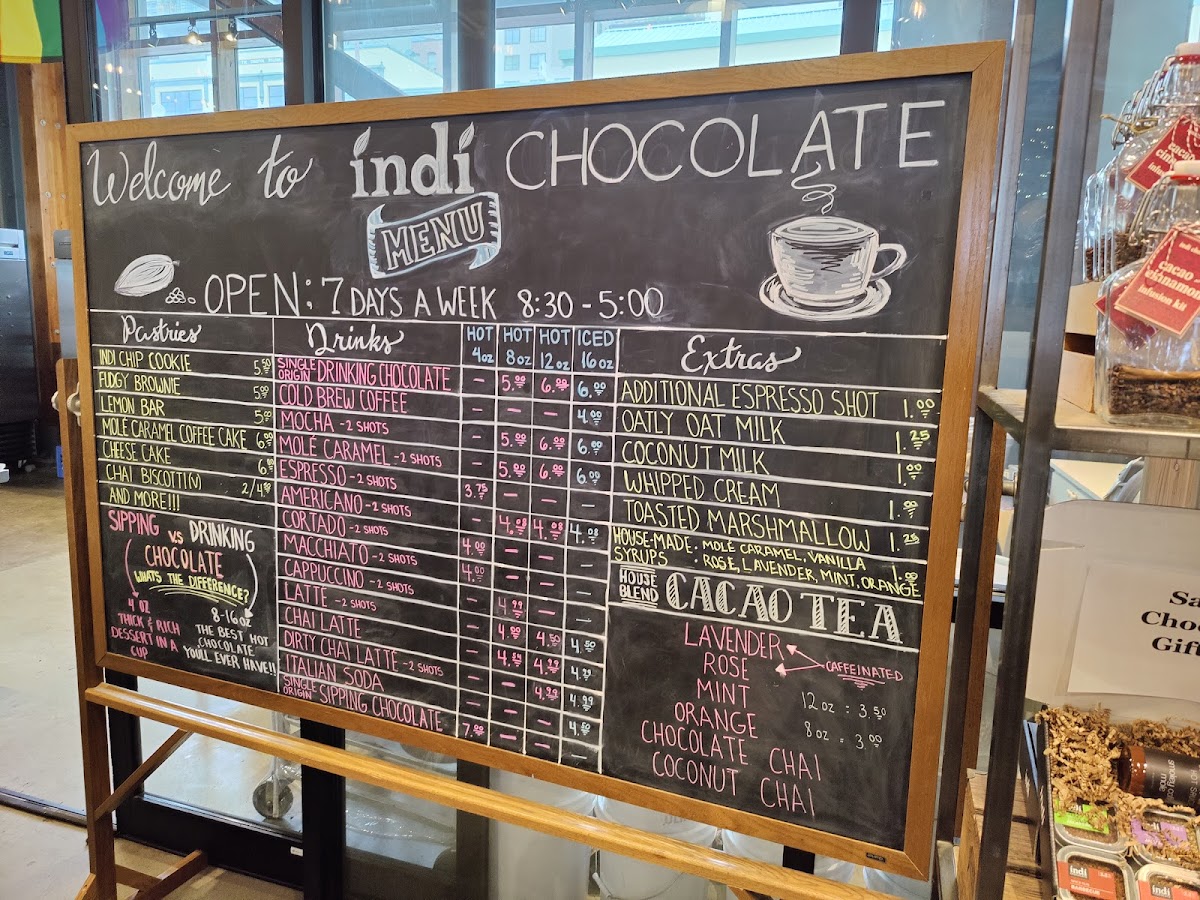 Welcome to indi CHOCOLATE
MENU
OPEN: 7 DAYS A WEEK 8:30 - 5:00
Pastries
INDI CHIP COOKIE 5.50
FUDGY BROWNIE 5.00
LEMON BAR 5.00
MOLÉ CARAMEL COFFEE CAKE 6.00
CHEESE CAKE 6.
CHAI BISCOTTI(V) 2/4.
AND MORE!!!
SIPPING vs DRINKING
CHOCOLATE
WHATS THE DIFFERENCE?
4 OZ
THICK & RICH
DESSERT IN A
CUP
8-16 OZ
THE BEST HOT
CHOCOLATE
YOU'LL EVER HAVE!!
Drinks HOT 4oz HOT 8oz HOT 12oz ICED 16oz
SINGLE ORIGIN DRINKING CHOCOLATE - 5.00 6.00 6.00
COLD BREW COFFEE - - - 4.00
MOCHA - 2 SHOTS - 5.00 6.00 6.00
MOLÉ CARAMEL - 2 SHOTS - 5.00 6.00 6.00
ESPRESSO - 2 SHOTS 3.75 - - -
AMERICANO - 2 SHOTS - 4.08 4.08 4.08
CORTADO - 2 SHOTS 4.00 - - -
MACCHIATO - 2 SHOTS 4.00 - - -
CAPPUCCINO - 2 SHOTS - 4.99 - -
LATTE - 2 SHOTS - 4.00 4.50 4.50
CHAI LATTE - 4.54 4.99 4.99
DIRTY CHAI LATTE - 2 SHOTS - - 4.99 4.99
ITALIAN SODA - - - 4.50
SINGLE ORIGIN SIPPING CHOCOLATE 7.00 - - -
Extras
ADDITIONAL ESPRESSO SHOT 1.00
OATLY OAT MILK 1.25
COCONUT MILK 1.00
WHIPPED CREAM 1.00
TOASTED MARSHMALLOW 1.25
HOUSE-MADE SYRUPS • MOLÉ CARAMEL, VANILLA
• ROSE, LAVENDER, MINT, ORANGE 1.00
HOUSE BLEND CACAO TEA
LAVENDER
ROSE
CAFFEINATED
MINT
ORANGE
CHOCOLATE CHAI
COCONUT CHAI
12oz = 3.50
8oz = 3.00
cacao
cinnamon
infusion kit
Gift
indi
indi